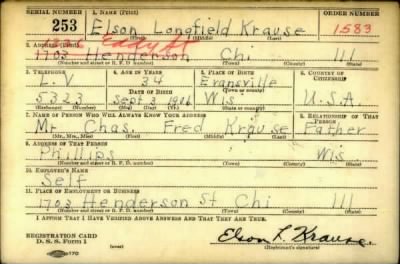 SERIAL NUMBER 1. NAME (Print) ORDER NUMBER
253 Elson Longfield Krause 1583
(First) (Middle) (Last)
2. ADDRESS (Print) Eddy St
1703 Henderson Chi Ill
(Number and street or R. F. D. number) (Town) (County) (State)
3. TELEPHONE 4. AGE IN YEARS 5. PLACE OF BIRTH 6. COUNTRY OF CITIZENSHIP
L.V 34 Evansville
DATE OF BIRTH (Town or county)
5323 Sept 3 1906 Wis U.S.A.
(Exchange) (Number) (Mo.) (Day) (Yr.) (State or country)
7. NAME OF PERSON WHO WILL ALWAYS KNOW YOUR ADDRESS 8. RELATIONSHIP OF THAT PERSON
Mr. Chas. Fred Krause Father
(Mr., Mrs., Miss) (First) (Middle) (Last)
9. ADDRESS OF THAT PERSON
Phillips Wis
(Number and street or R. F. D. number) (Town) (County) (State)
10. EMPLOYER'S NAME
Self
11. PLACE OF EMPLOYMENT OR BUSINESS
1703 Henderson St Chi Ill
(Number and street or R. F. D. number) (Town) (County) (State)
I AFFIRM THAT I HAVE VERIFIED ABOVE ANSWERS AND THAT THEY ARE TRUE.
REGISTRATION CARD
D. S. S. Form 1 (over) Elson L. Krause
(Registrant's signature)